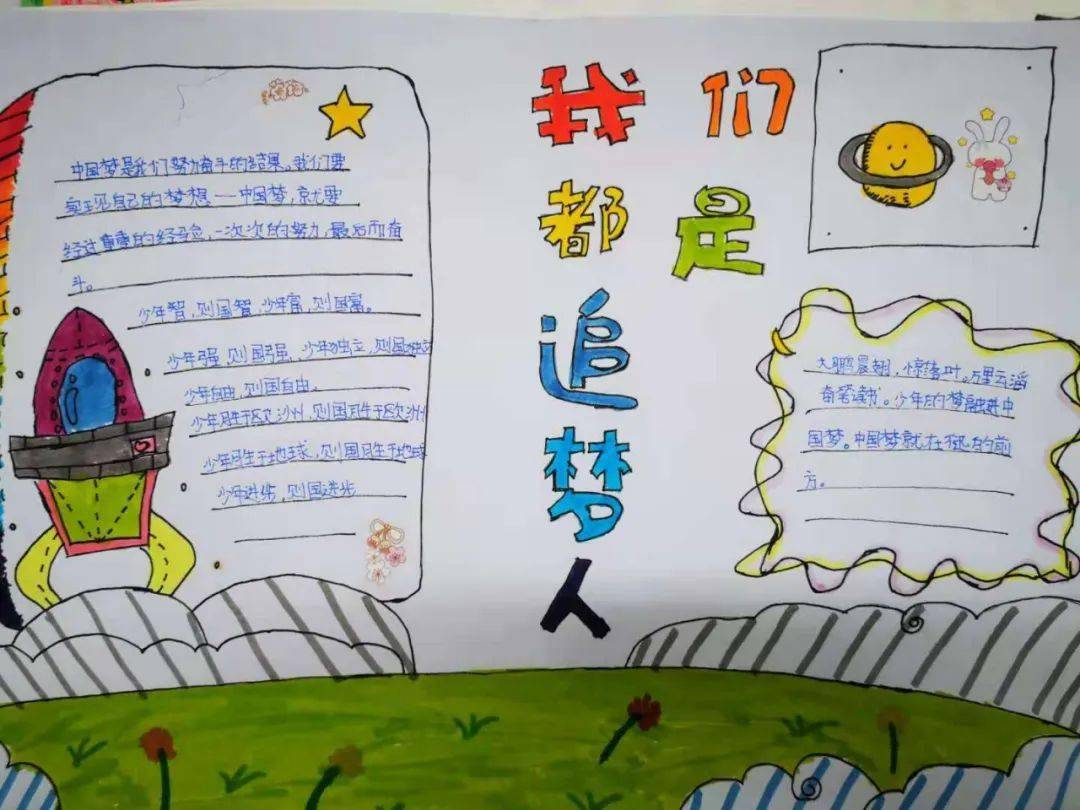 我们
都是
追
梦
人
中国梦是我们努力奋斗的结果。我们要
实现自己的梦想——中国梦，就要
经过重重的经验，一次次的努力，最后而奋
斗。
少年智，则国智，少年富，则国富。
少年强，则国强，少年独立，则国独立
少年自由，则国自由。
少年胜于欧洲，则国胜于欧洲
少年胜于地球，则国胜于地球
少年进步，则国进步
大鹏晨翅，惊落叶。万里云
奋笔读书。少年的梦融进中
国梦。中国梦就在你的前
方。